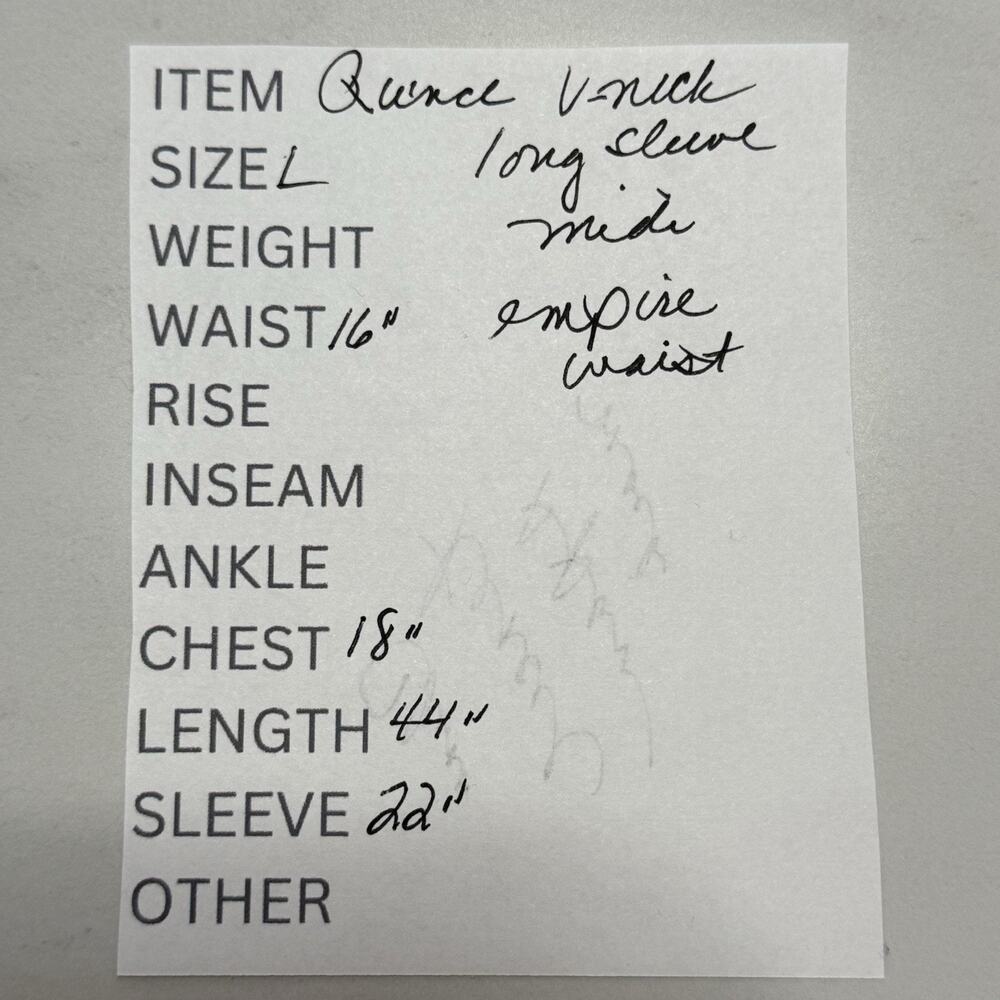 ITEM Quince V-neck
SIZE L long sleeve
WEIGHT midi
WAIST 16" empire
waist
RISE
INSEAM
ANKLE
CHEST 18"
LENGTH 44"
SLEEVE 22"
OTHER